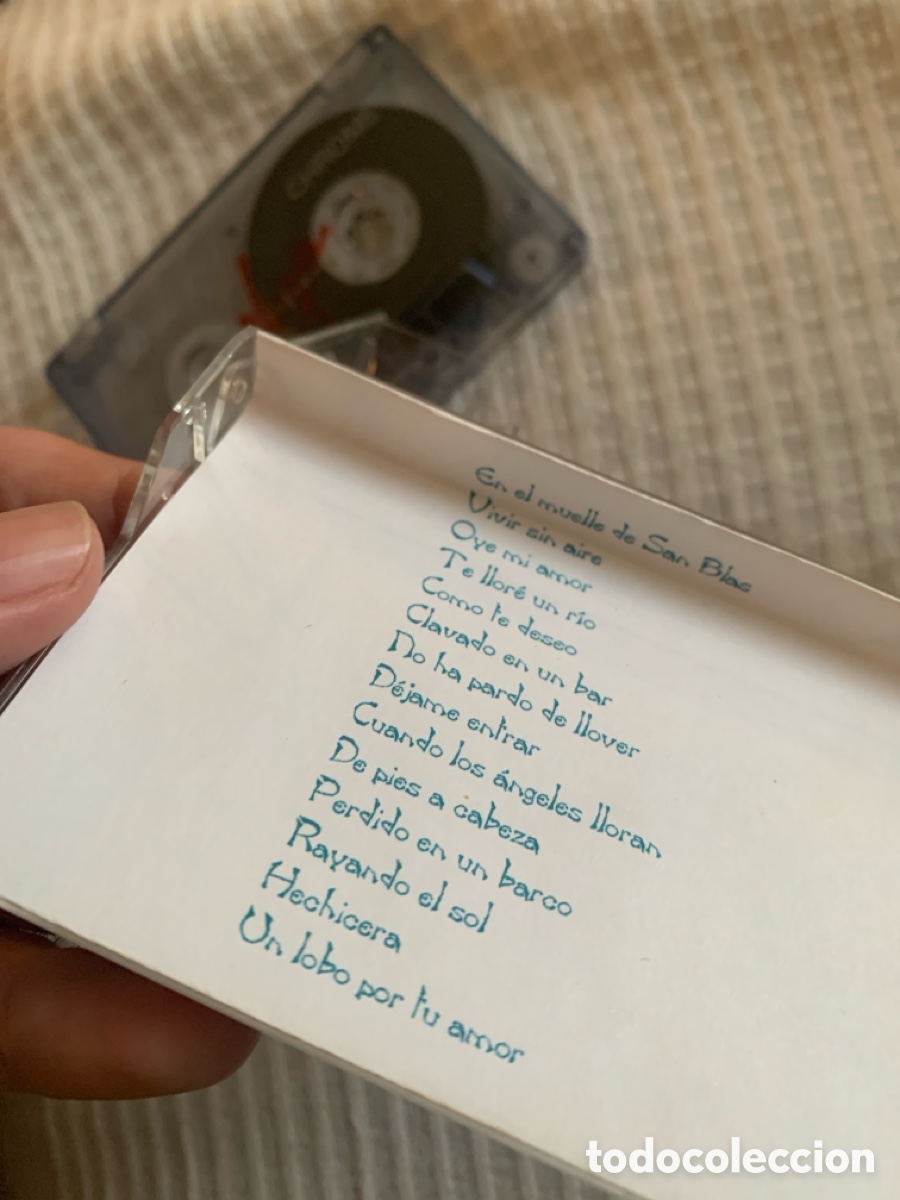 CHROME
En el muelle de San Blas
Vivir sin aire
Oye mi amor
Te lloré un río
Como te deseo
Clavado en un bar
No ha pardo de llover
Déjame entrar
Cuando los ángeles lloran
De pies a cabeza
Perdido en un barco
Rayando el sol
Hechicera
Un lobo por tu amor
todocoleccion